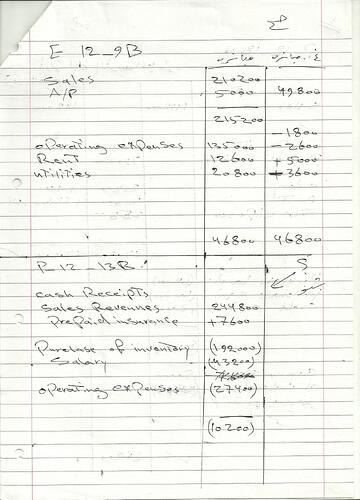 ع
E 12-9B
مباشره غ. مباشره
Sales 210200
A/P 5000 49800
215200
-1800
operating expenses 135000 -2600
Rent 12600 +5000
utilities 20800 -3600
46800 46800
P-12-13B
cash Receipts
Sales Revenues 244800
Prepaid insurance +7600
Purchase of inventory (192000)
Salary (43200)
operating expenses (27400)
(10200)